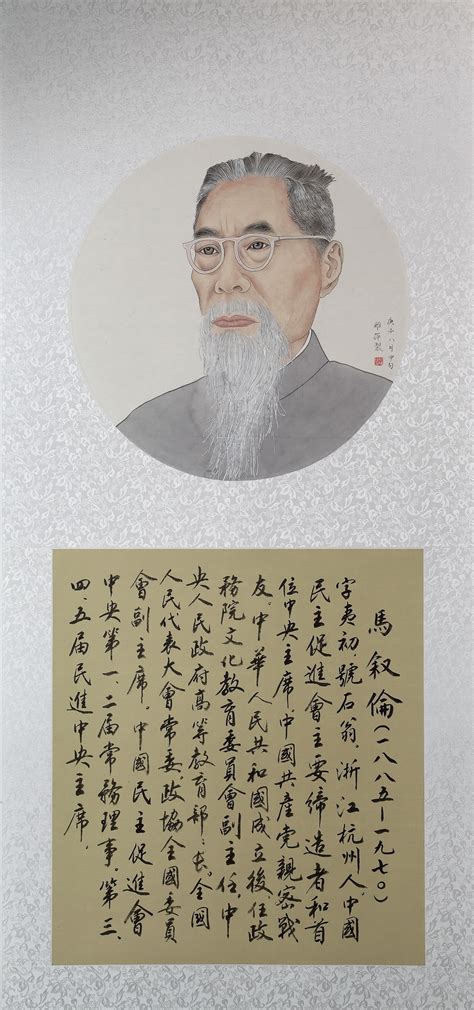 庚子八月中旬
馬叙倫(一八八五—一九七〇)
字夷初,號石翁,浙江杭州人,中國
民主促進會主要締造者和首
位中央主席,中國共產黨親密戰
友。中華人民共和國成立後,任政
務院文化教育委員會副主任,中
央人民政府高等教育部:长,全國
人民代表大會常委,政協全國委員
會副主席,中國民主促進會
中央第一、二届常務理事,第三、
四、五届民進中央主席。